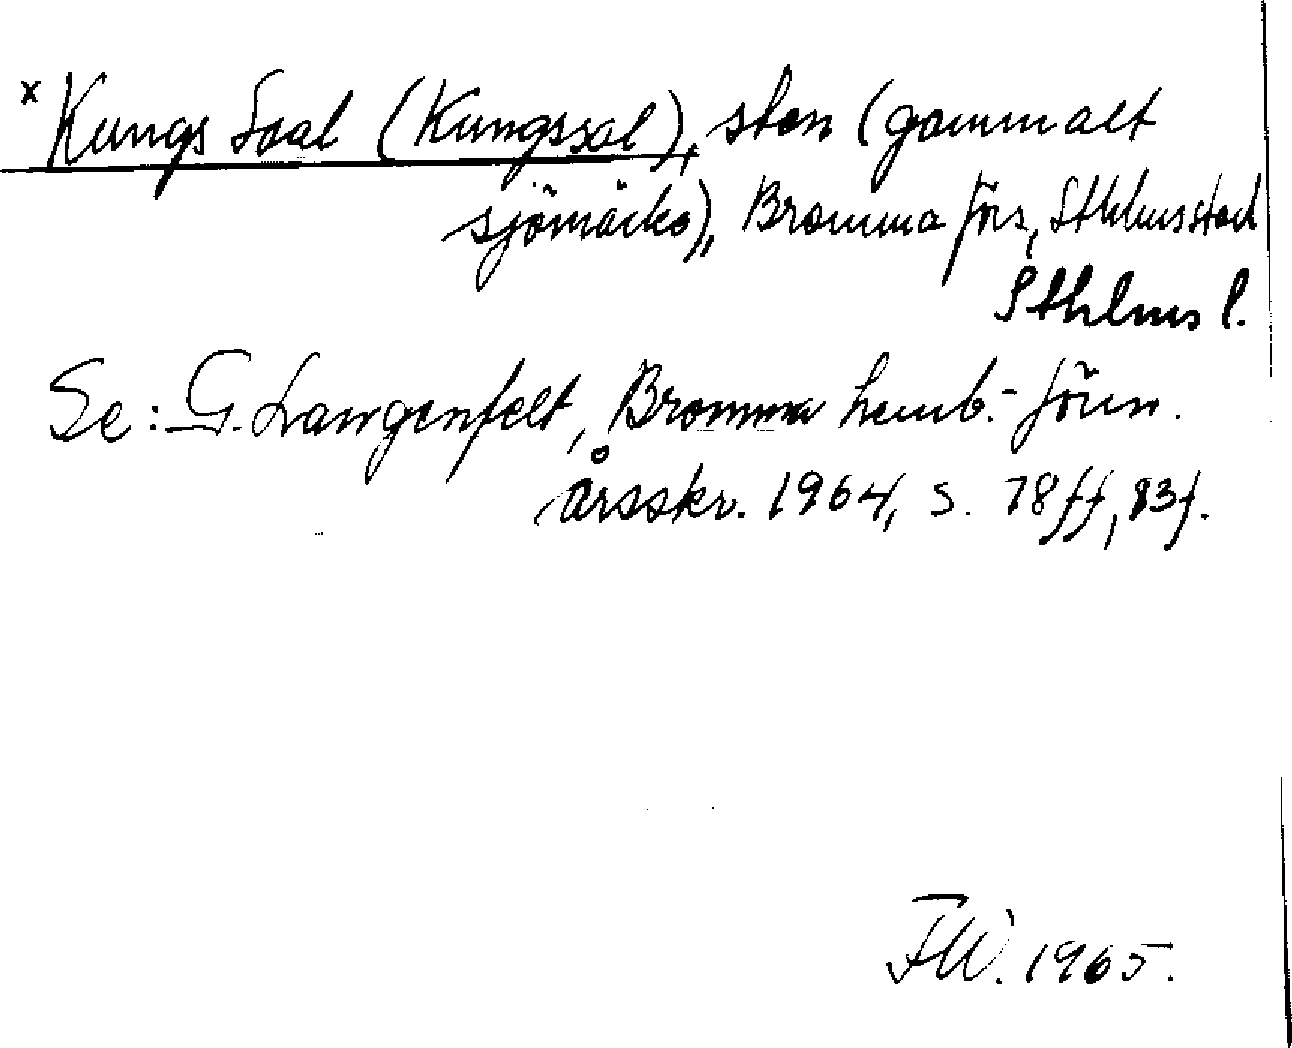 x Kungs Saal (Kungssal), sten (gammalt
sjömärke), Bromma förs, Sthlms stad
Sthlms l.
Se: G. Langenfelt, Bromma hemb.-fören.
årsskr. 1964, s. 78 ff, 83 f.
FW. 1965.